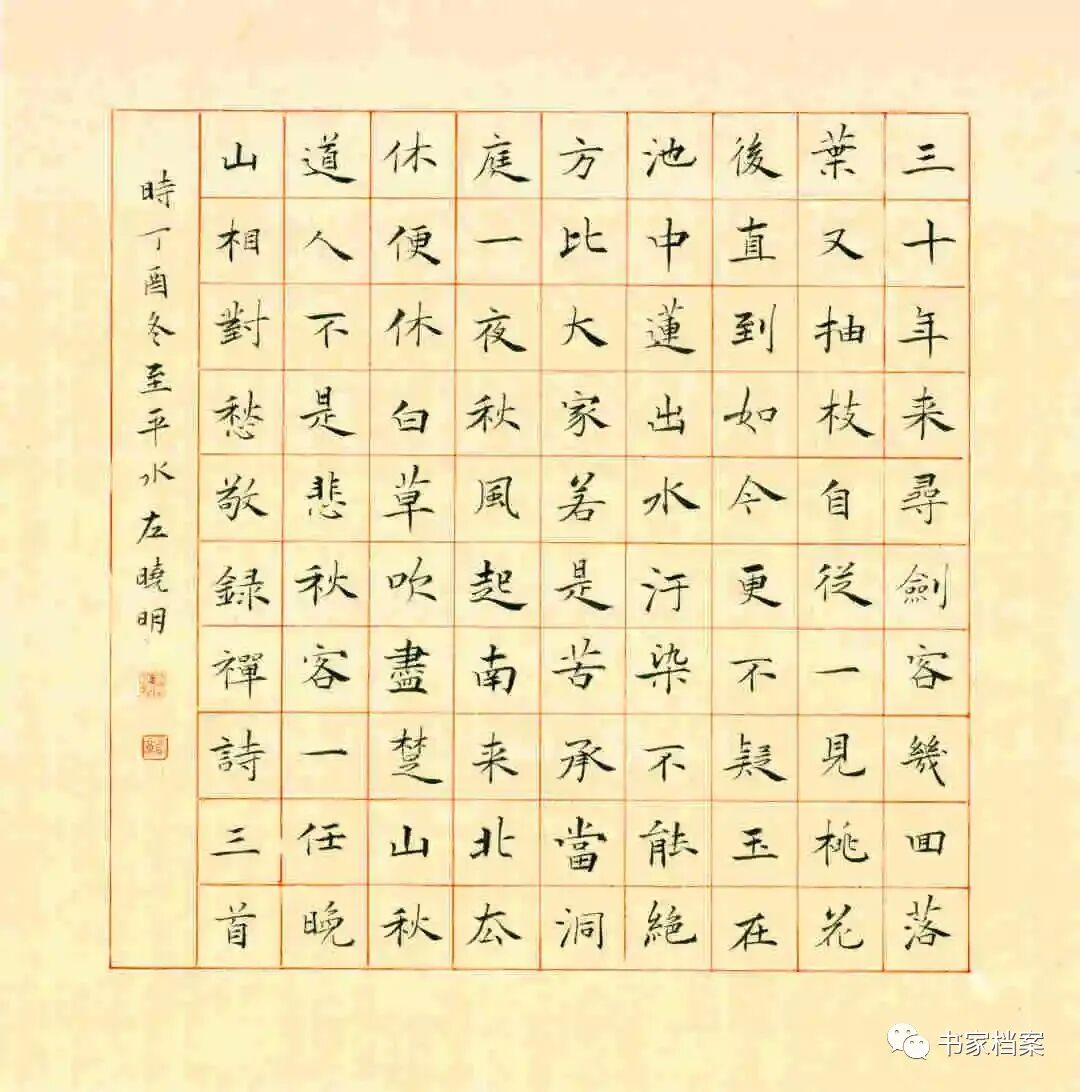 三十年来尋劍客幾回落
葉又抽枝自從一見桃花
後直到如今更不疑玉在
池中蓮出水汙染不能絶
方比大家若是苦承當洞
庭一夜秋風起南来北厺
休便休白草吹盡楚山秋
道人不是悲秋客一任晚
山相對愁敬録禪詩三首
時丁酉冬至平水左曉明
书家档案